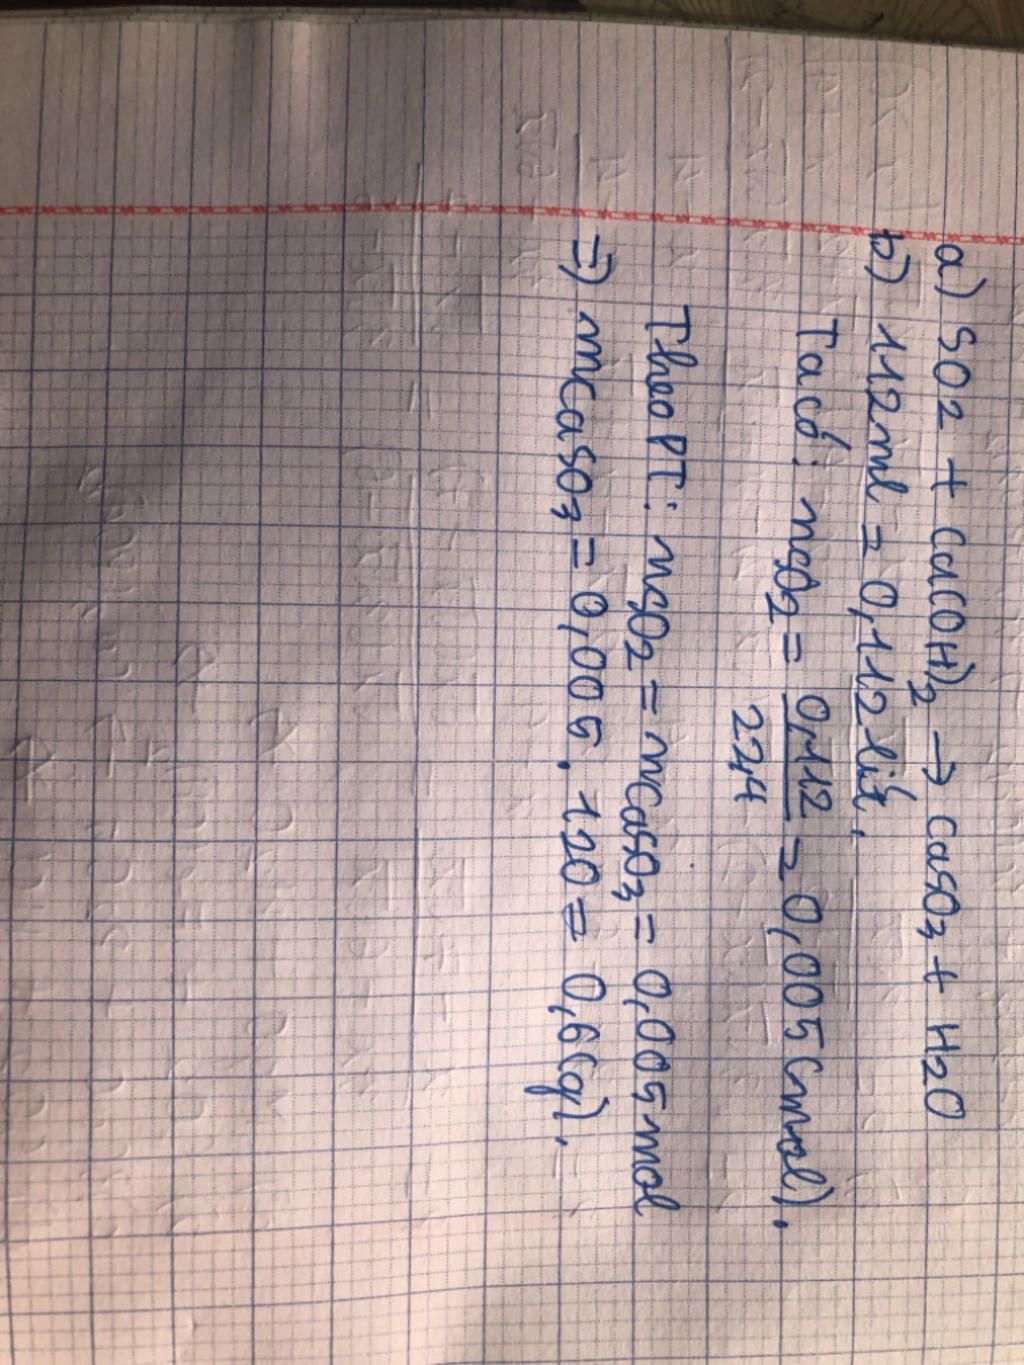 a) SO2 + Ca(OH)2 → CaSO3 + H2O
b) 112ml = 0,112 lít.
Ta có: nSO2 = 0,112 / 22,4 = 0,005 (mol).
Theo PT: nSO2 = nCaSO3 = 0,005 mol
=> mCaSO3 = 0,005 . 120 = 0,6 (g).